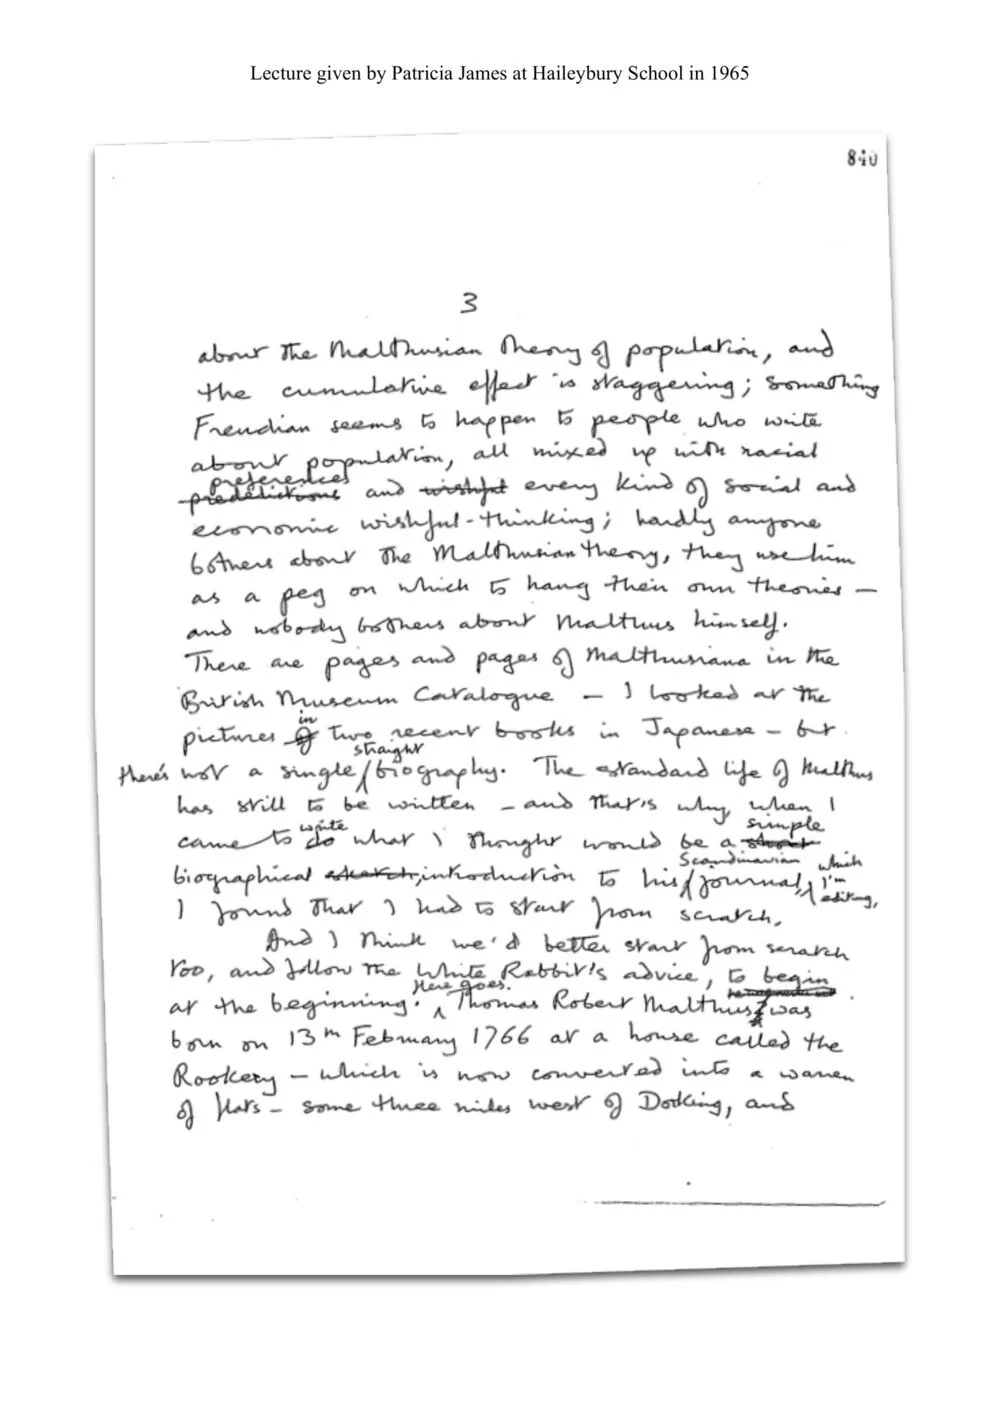 Lecture given by Patricia James at Haileybury School in 1965
840
3
about the Malthusian Theory of population, and
the cumulative effect is staggering; something
Freudian seems to happen to people who write
about population, all mixed up with racial
preferences
predelictions and wishful every kind of social and
economic wishful-thinking; hardly anyone
bothers about the Malthusian theory, they use him
as a peg on which to hang their own theories —
and nobody bothers about Malthus himself.
There are pages and pages of Malthusiana in the
British Museum Catalogue — I looked at the
in
pictures of two recent books in Japanese — but
straight
there's not a single biography. The standard life of Malthus
has still to be written — and that's why, when I
write simple
came to do what I thought would be a short
Scandinavian which
biographical sketch, introduction to his journal, I'm
editing,
I found that I had to start from scratch.
And I think we'd better start from scratch
too, and follow the White Rabbit's advice, to begin
Here goes.
at the beginning. Thomas Robert Malthus was
born on 13th February 1766 at a house called the
Rookery — which is now converted into a warren
of flats — some three miles west of Dorking, and